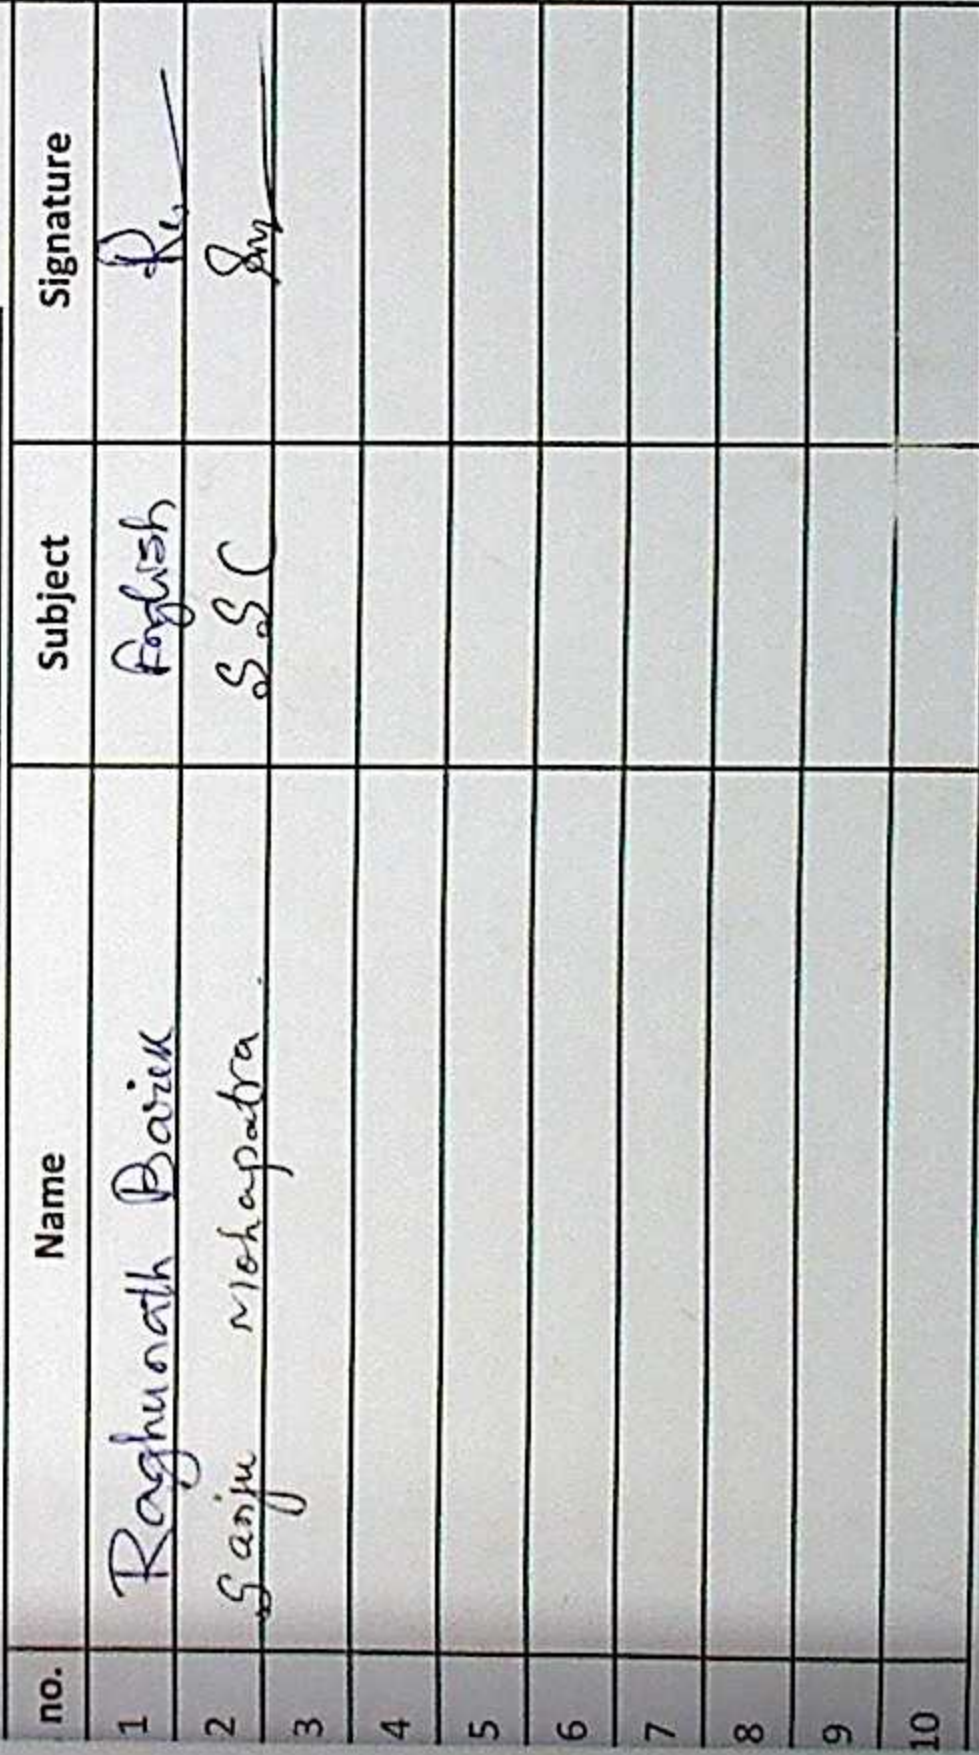 no. Name Subject Signature
1 Raghunath Barik English
2 Sanju Mohapatra. S.S.C
3
4
5
6
7
8
9
10